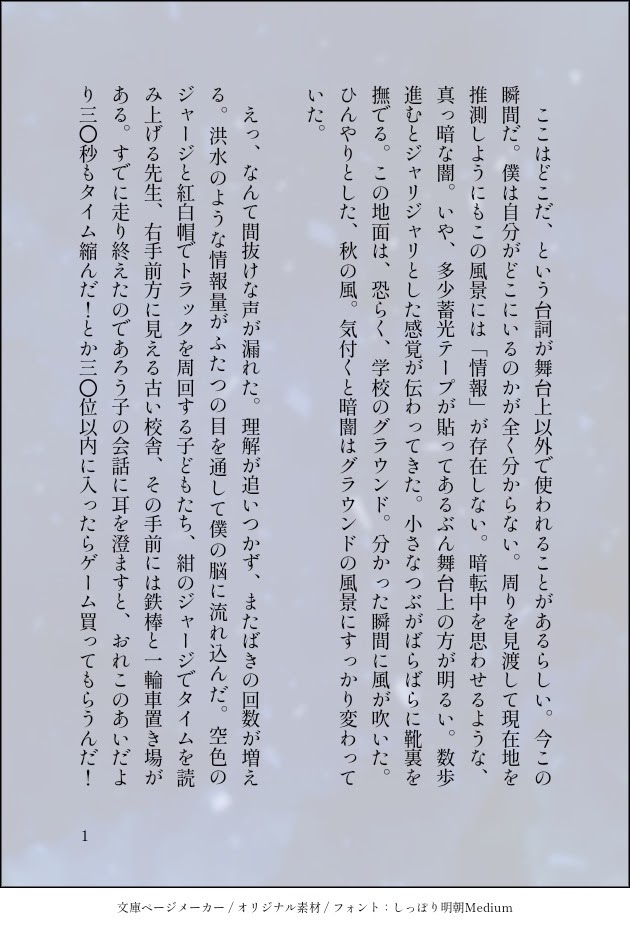 ここはどこだ、という台詞が舞台上以外で使われることがあるらしい。今この
瞬間だ。僕は自分がどこにいるのかが全く分からない。周りを見渡して現在地を
推測しようにもこの風景には「情報」が存在しない。暗転中を思わせるような、
真っ暗な闇。いや、多少蓄光テープが貼ってあるぶん舞台上の方が明るい。数歩
進むとジャリジャリとした感覚が伝わってきた。小さなつぶがばらばらに靴裏を
撫でる。この地面は、恐らく、学校のグラウンド。分かった瞬間に風が吹いた。
ひんやりとした、秋の風。気付くと暗闇はグラウンドの風景にすっかり変わって
いた。
　えっ、なんて間抜けな声が漏れた。理解が追いつかず、またばきの回数が増え
る。洪水のような情報量がふたつの目を通して僕の脳に流れ込んだ。空色の
ジャージと紅白帽でトラックを周回する子どもたち、紺のジャージでタイムを読
み上げる先生、右手前方に見える古い校舎、その手前には鉄棒と一輪車置き場が
ある。すでに走り終えたのであろう子の会話に耳を澄ますと、おれこのあいだよ
り三〇秒もタイム縮んだ！とか三〇位以内に入ったらゲーム買ってもらうんだ！
1
文庫ページメーカー / オリジナル素材 / フォント：しっぽり明朝Medium